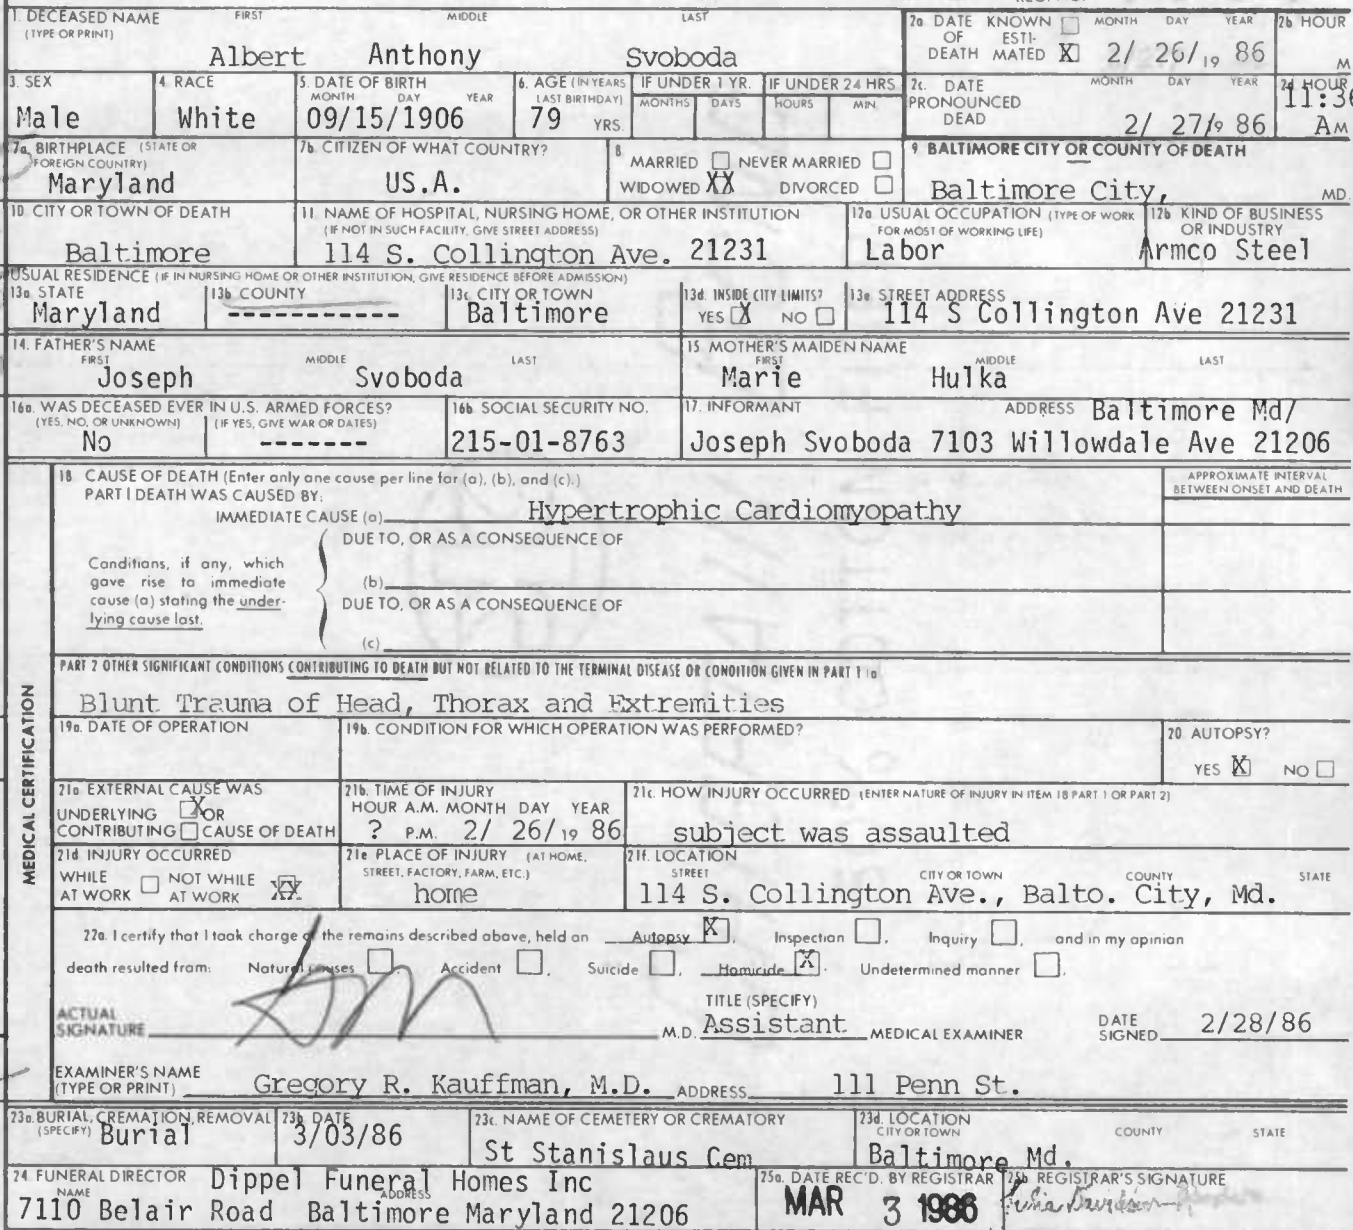 1. DECEASED NAME FIRST MIDDLE LAST
(TYPE OR PRINT)
Albert Anthony Svoboda
2a DATE KNOWN ☐ MONTH DAY YEAR
OF ESTI-
DEATH MATED ☒ 2/ 26/19 86
2b HOUR
M
3. SEX
Male
4. RACE
White
5. DATE OF BIRTH
MONTH DAY YEAR
09/15/1906
6. AGE (IN YEARS
LAST BIRTHDAY)
79 YRS.
IF UNDER 1 YR.
MONTHS DAYS
IF UNDER 24 HRS
HOURS MIN.
2c. DATE MONTH DAY YEAR
PRONOUNCED
DEAD
2/ 27/9 86
2d HOUR
11:36
AM
7a. BIRTHPLACE (STATE OR
FOREIGN COUNTRY)
Maryland
7b. CITIZEN OF WHAT COUNTRY?
US.A.
8
MARRIED ☐ NEVER MARRIED ☐
WIDOWED XX DIVORCED ☐
9 BALTIMORE CITY OR COUNTY OF DEATH
Baltimore City, MD.
10. CITY OR TOWN OF DEATH
Baltimore
11. NAME OF HOSPITAL, NURSING HOME, OR OTHER INSTITUTION
(IF NOT IN SUCH FACILITY, GIVE STREET ADDRESS)
114 S. Collington Ave. 21231
12a USUAL OCCUPATION (TYPE OF WORK
FOR MOST OF WORKING LIFE)
Labor
12b. KIND OF BUSINESS
OR INDUSTRY
Armco Steel
USUAL RESIDENCE (IF IN NURSING HOME OR OTHER INSTITUTION, GIVE RESIDENCE BEFORE ADMISSION)
13a. STATE
Maryland
13b. COUNTY
-----------
13c. CITY OR TOWN
Baltimore
13d. INSIDE CITY LIMITS?
YES ☒ NO ☐
13e STREET ADDRESS
114 S Collington Ave 21231
14. FATHER'S NAME
FIRST MIDDLE LAST
Joseph Svoboda
15. MOTHER'S MAIDEN NAME
FIRST MIDDLE LAST
Marie Hulka
16a. WAS DECEASED EVER IN U.S. ARMED FORCES?
(YES, NO, OR UNKNOWN) (IF YES, GIVE WAR OR DATES)
No -------
16b. SOCIAL SECURITY NO.
215-01-8763
17. INFORMANT ADDRESS Baltimore Md/
Joseph Svoboda 7103 Willowdale Ave 21206
MEDICAL CERTIFICATION
18 CAUSE OF DEATH (Enter only one cause per line for (a), (b), and (c).)
PART I DEATH WAS CAUSED BY:
IMMEDIATE CAUSE (a) Hypertrophic Cardiomyopathy
APPROXIMATE INTERVAL
BETWEEN ONSET AND DEATH
DUE TO, OR AS A CONSEQUENCE OF
Conditions, if any, which
gave rise to immediate
cause (a) stating the under-
lying cause last.
(b)
DUE TO, OR AS A CONSEQUENCE OF
(c)
PART 2 OTHER SIGNIFICANT CONDITIONS CONTRIBUTING TO DEATH BUT NOT RELATED TO THE TERMINAL DISEASE OR CONDITION GIVEN IN PART 1 (a
Blunt Trauma of Head, Thorax and Extremities
19a. DATE OF OPERATION
19b. CONDITION FOR WHICH OPERATION WAS PERFORMED?
20. AUTOPSY?
YES ☒ NO ☐
21a EXTERNAL CAUSE WAS
UNDERLYING ☒ OR
CONTRIBUTING ☐ CAUSE OF DEATH
21b. TIME OF INJURY
HOUR A.M. MONTH DAY YEAR
? P.M. 2/ 26/ 19 86
21c. HOW INJURY OCCURRED (ENTER NATURE OF INJURY IN ITEM 18 PART 1 OR PART 2)
subject was assaulted
21d INJURY OCCURRED
WHILE ☐ NOT WHILE
AT WORK AT WORK XX
21e PLACE OF INJURY (AT HOME,
STREET, FACTORY, FARM, ETC.)
home
21f. LOCATION
STREET CITY OR TOWN COUNTY STATE
114 S. Collington Ave., Balto. City, Md.
22a. I certify that I took charge of the remains described above, held an Autopsy ☒, Inspection ☐, Inquiry ☐, and in my opinion
death resulted from: Natural causes ☐ Accident ☐, Suicide ☐, Homicide ☒. Undetermined manner ☐.
ACTUAL
SIGNATURE M.D.
TITLE (SPECIFY)
Assistant MEDICAL EXAMINER
DATE
SIGNED 2/28/86
EXAMINER'S NAME
(TYPE OR PRINT) Gregory R. Kauffman, M.D. ADDRESS 111 Penn St.
23a. BURIAL, CREMATION, REMOVAL
(SPECIFY) Burial
23b. DATE
3/03/86
23c. NAME OF CEMETERY OR CREMATORY
St Stanislaus Cem
23d. LOCATION
CITY OR TOWN COUNTY STATE
Baltimore Md.
24 FUNERAL DIRECTOR Dippel Funeral Homes Inc
NAME ADDRESS
7110 Belair Road Baltimore Maryland 21206
25a. DATE REC'D. BY REGISTRAR
MAR 3 1986
25b REGISTRAR'S SIGNATURE